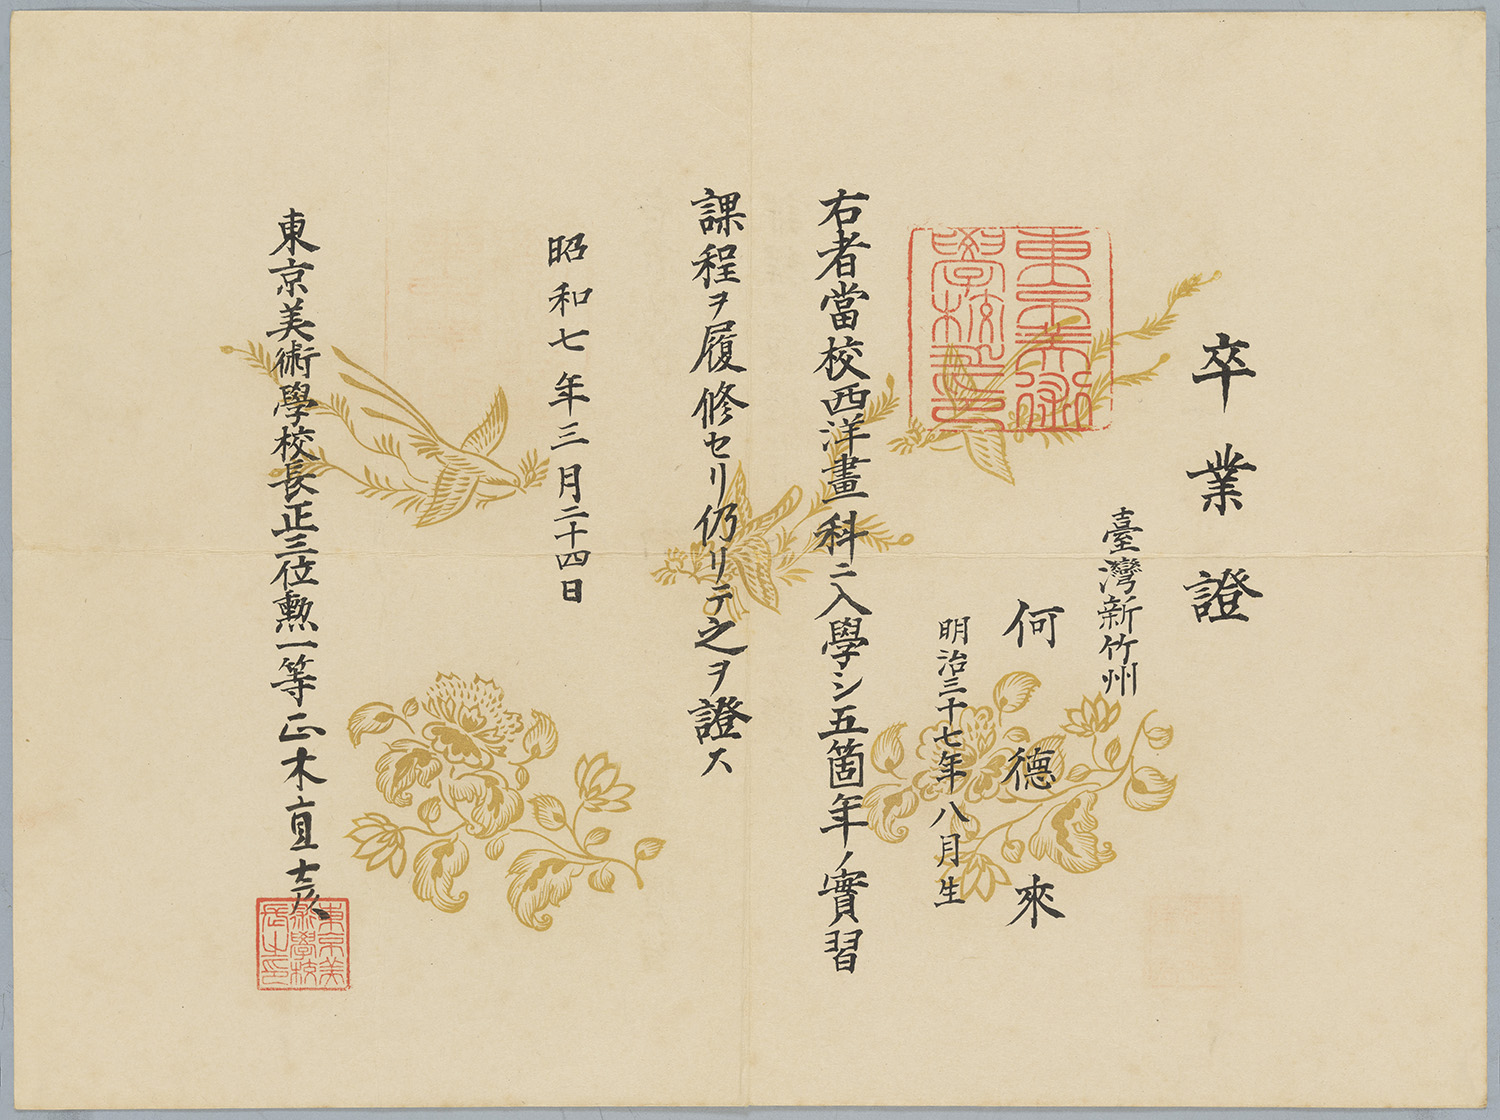 卒業證
臺灣新竹州
何德來
明治三十七年八月生
右者當校西洋畫科ニ入學シ五箇年ノ實習
課程ヲ履修セリ仍リテ之ヲ證ス
昭和七年三月二十四日
東京美術學校長正三位勲一等正木直彦
東京美術
學校之印
東京美
術學校
長之印